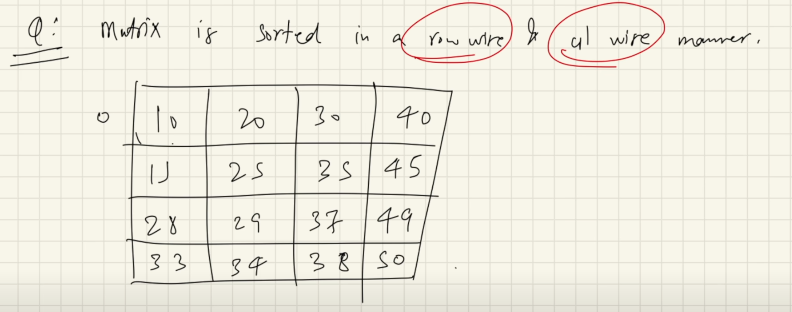 Q: Matrix is sorted in a row wise & col wise manner.
0 10 20 30 40
15 25 35 45
28 29 37 49
33 34 38 50